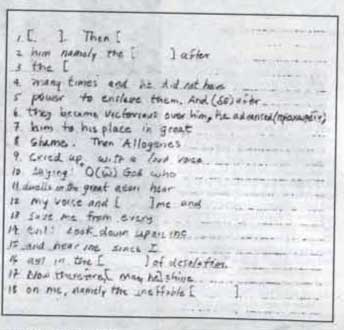 1. [. ]. Then [
2 him namely the [ ] after
3 the [
4. many times and he did not have
5 power to enslave them. And (δέ) after
6. they became victorious over him, he advanced
7. him to his place in great
8 shame. Then Allogenes
9. cried up with a loud voice
10 saying: O(ὦ) God who
11. dwells in the great aeon hear
12 my voice and [ ] me and
13 save me from every
14 evil: Look down upon me
15. and hear me since I
16 am in the [ ] of desolation.
17 Now therefore, [ may he] shine
18 on me, namely the ineffable [ ],